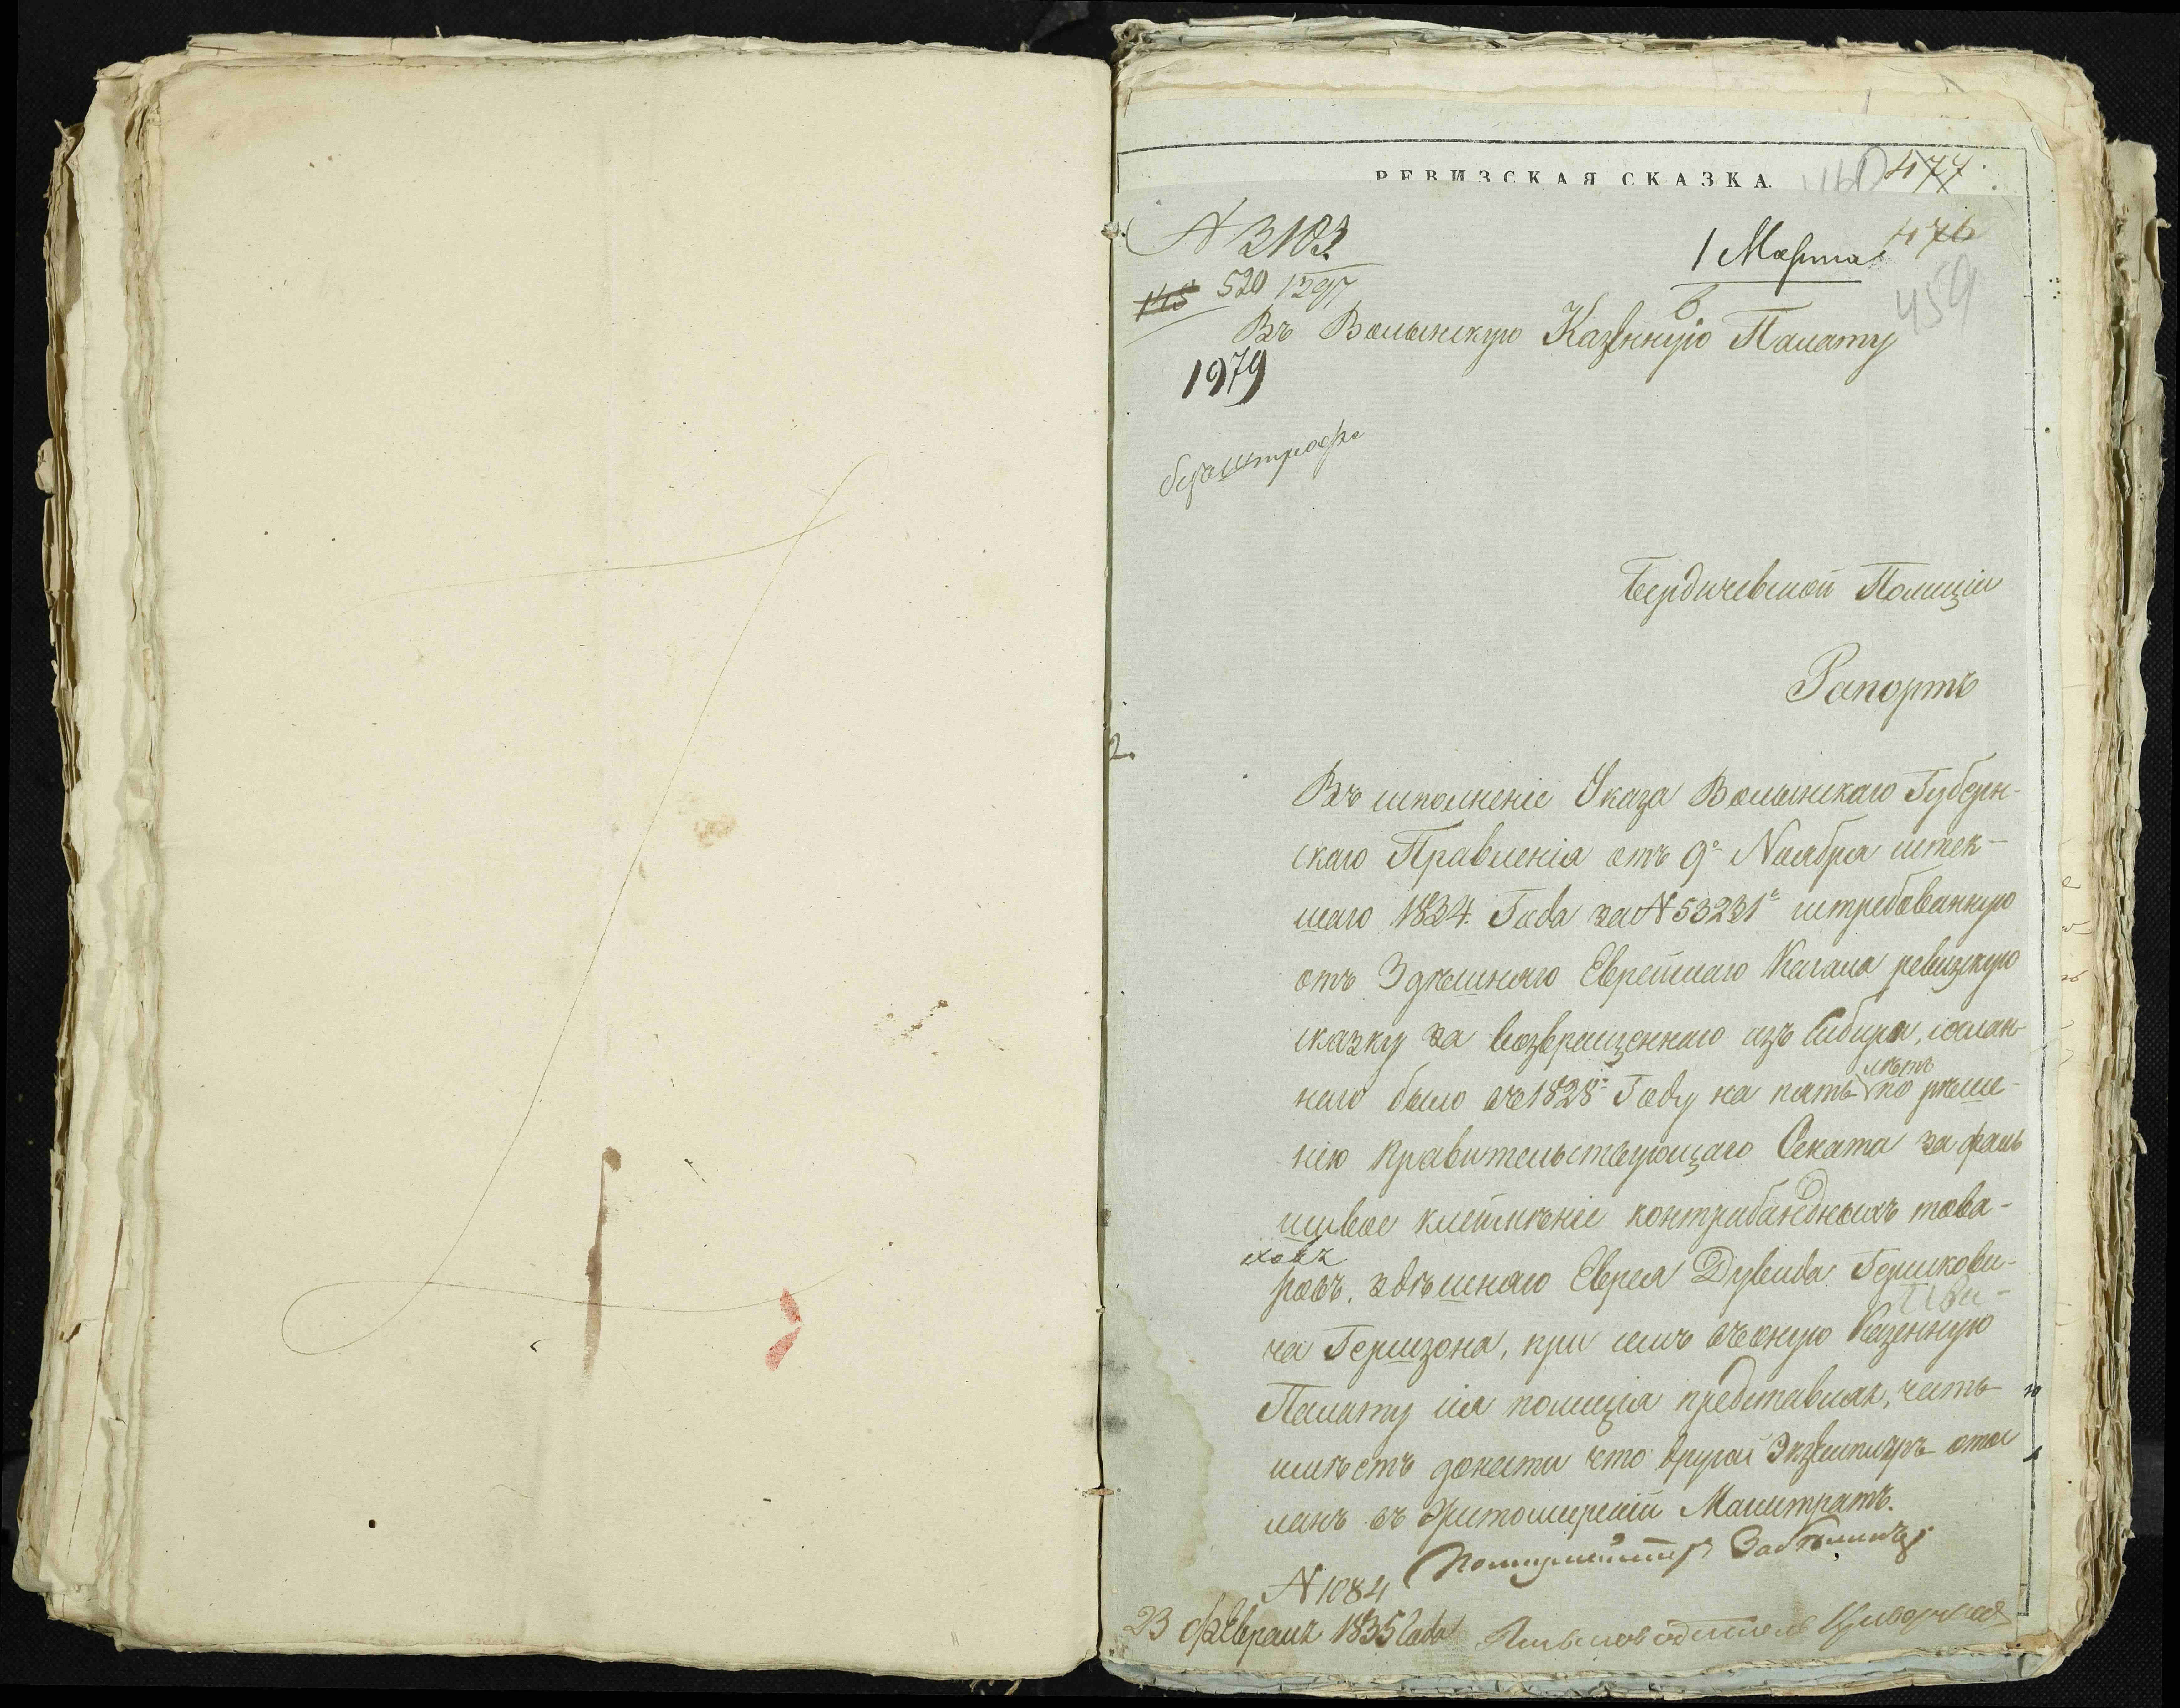 РЕВИЗСКАЯ СКАЗКА.
477
476
459
N 3103
1 Марта
145 520 1297
Въ Волынскую Казенную Палату
1979
безъ штрафа
Бердичевской Полиціи
Рапортъ
Въ исполненіе Указа Волынскаго Губерн-
скаго Правленія отъ 9го Ноября истек-
шаго 1834. Года за N 53231м истребованную
отъ Здѣшняго Еврейскаго Кагала ревизкую
сказку за возвращеннаго изъ Сибири, сослан-
наго было въ 1828м Году на пять лѣтъ по рѣше-
нію Правительствующаго Сената за фаль
шивое клейменіе контрабандныхъ това-
ровъ, здѣшняго Еврея Дувида Гершкови-
ча Гершзона, при семъ въ оную Казенную
Палату сія полиція представляя, честь
имѣетъ донести что другой Экземпляръ отос
ланъ въ Житомирскій Магистратъ.
Полицмейстеръ
N 1084
23 Февраля 1835 Года Письмоводитель